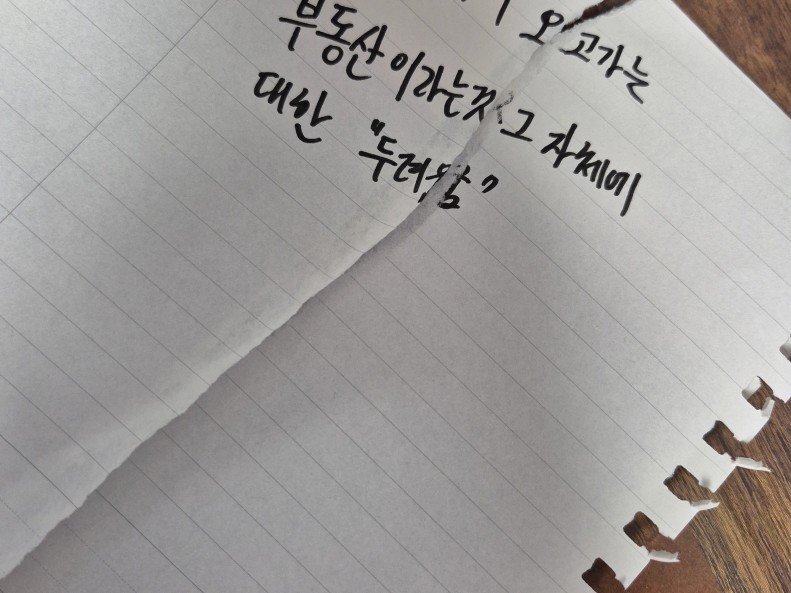 오고가는
부동산이라는것 그 자체에
대한 "두려움"